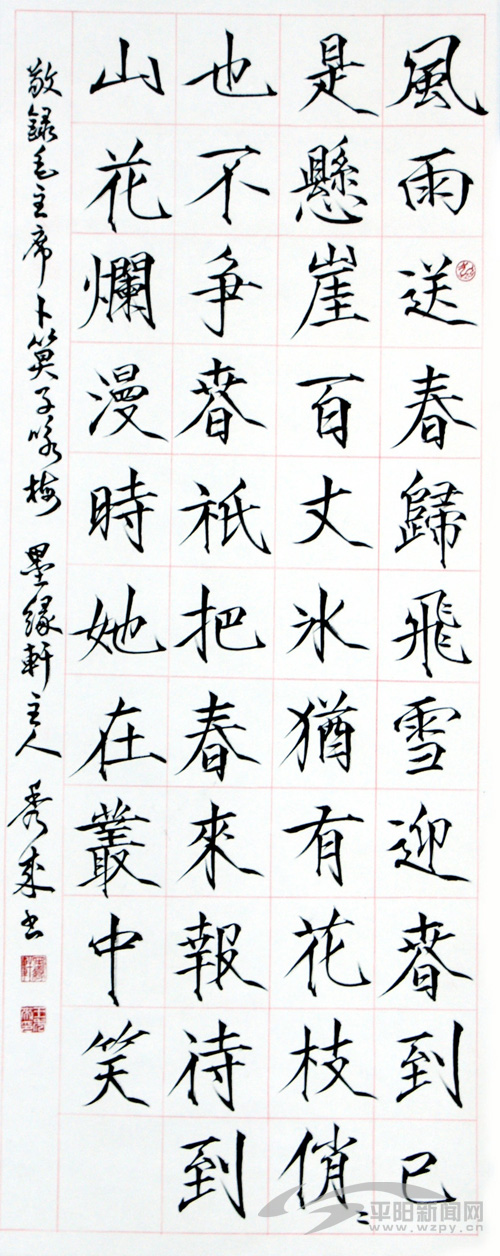 風雨送春歸飛雪迎春到已
是懸崖百丈冰猶有花枝俏〻
也不爭春祇把春來報待到
山花爛漫時她在叢中笑
敬録毛主席卜筭子咏梅 墨緣軒主人 秀書
平阳新闻网
www.wzpy.cn